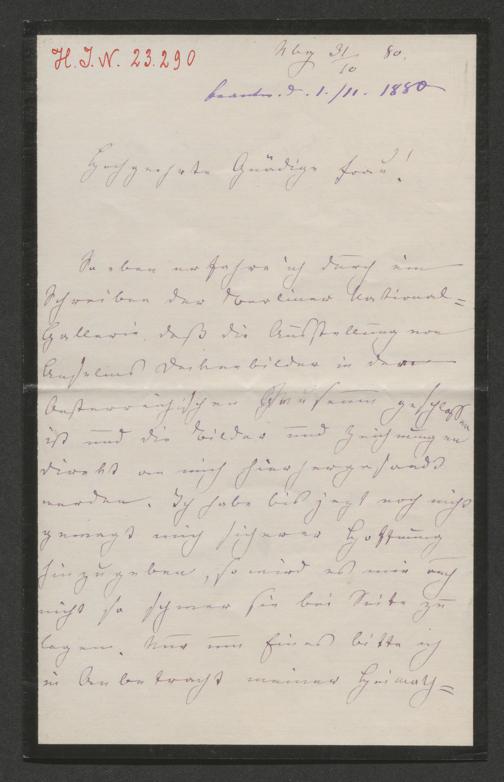 H. I. N. 23.290
Nbg 31/10 80.
beantw. d. 1./11. 1880
Hochgeehrte Gnädige Frau!
So eben erfahre ich durch ein
Schreiben der Berliner National=
Gallerie, daß die Ausstellung von
Anselms Bilder in dem
Oesterreichischen Museum geschlossen
ist und die Bilder und Zeichnungen
direkt an mich hierhergesandt
werden. Ich habe bis jetzt noch nicht
gewagt mich sicherer Hoffnung
hinzugeben, so wird es mir auch
nicht so schwer sie bei Seite zu
legen. Nur um Eines bitte ich
in Anbetracht meiner Heimath=